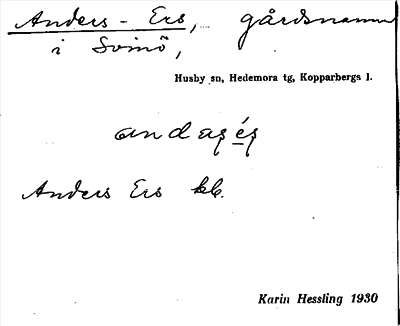 Anders - Ers, gårdsnamn
i Svinö,
Husby sn, Hedemora tg, Kopparbergs l.
Anders Ers kb.
Karin Hessling 1930